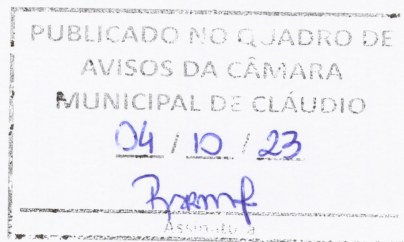 PUBLICADO NO QUADRO DE
AVISOS DA CÂMARA
MUNICIPAL DE CLÁUDIO
04 / 10 / 23
Assinatura